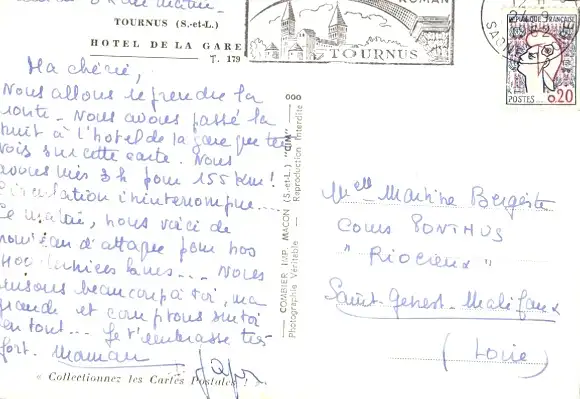 TOURNUS (S.-et-L.)
HOTEL DE LA GARE
T. 179
Ma chérie,
Nous allons reprendre la
route - Nous avons passé la
nuit à l'hotel de la gare que tu
vois sur cette carte. Nous
avons mis 3h pour 155 km!
Circulation ininterrompue...
Ce matin, nous voici de
nouveau d'attaque pour nos
400 derniers kms... Nous
pensons beaucoup à toi, ma
grande et comptons sur toi
en tout... Je t'embrasse très
fort. Maman
Papa
« Collectionnez les Cartes Postales ! »
COMBIER IMP. MACON (S.-et-L.) "CIM"
Photographie Véritable - Reproduction Interdite
ROMAN
TOURNUS
12 H
RÉPUBLIQUE FRANÇAISE
POSTES
0,20
Melle Martine Bergiste
Cours PONTHUS
" RIOCREUX "
Saint-Genest-Malifaux
(Loire)